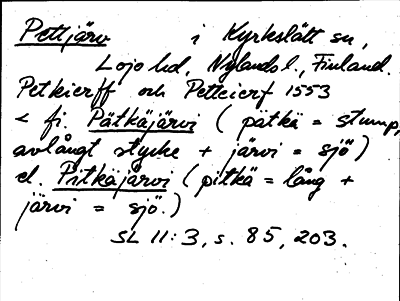 Pettjärv i Kyrkslätt sn,
Lojo hd, Nylands l., Finland.
Petkierff och Petteierf 1553
< fi. Pätkäjärvi (pätkä = stump,
avlångt stycke + järvi = sjö)
el. Pitkäjärvi (pitkä = lång +
järvi = sjö.)
SL 11:3, s. 85, 203.